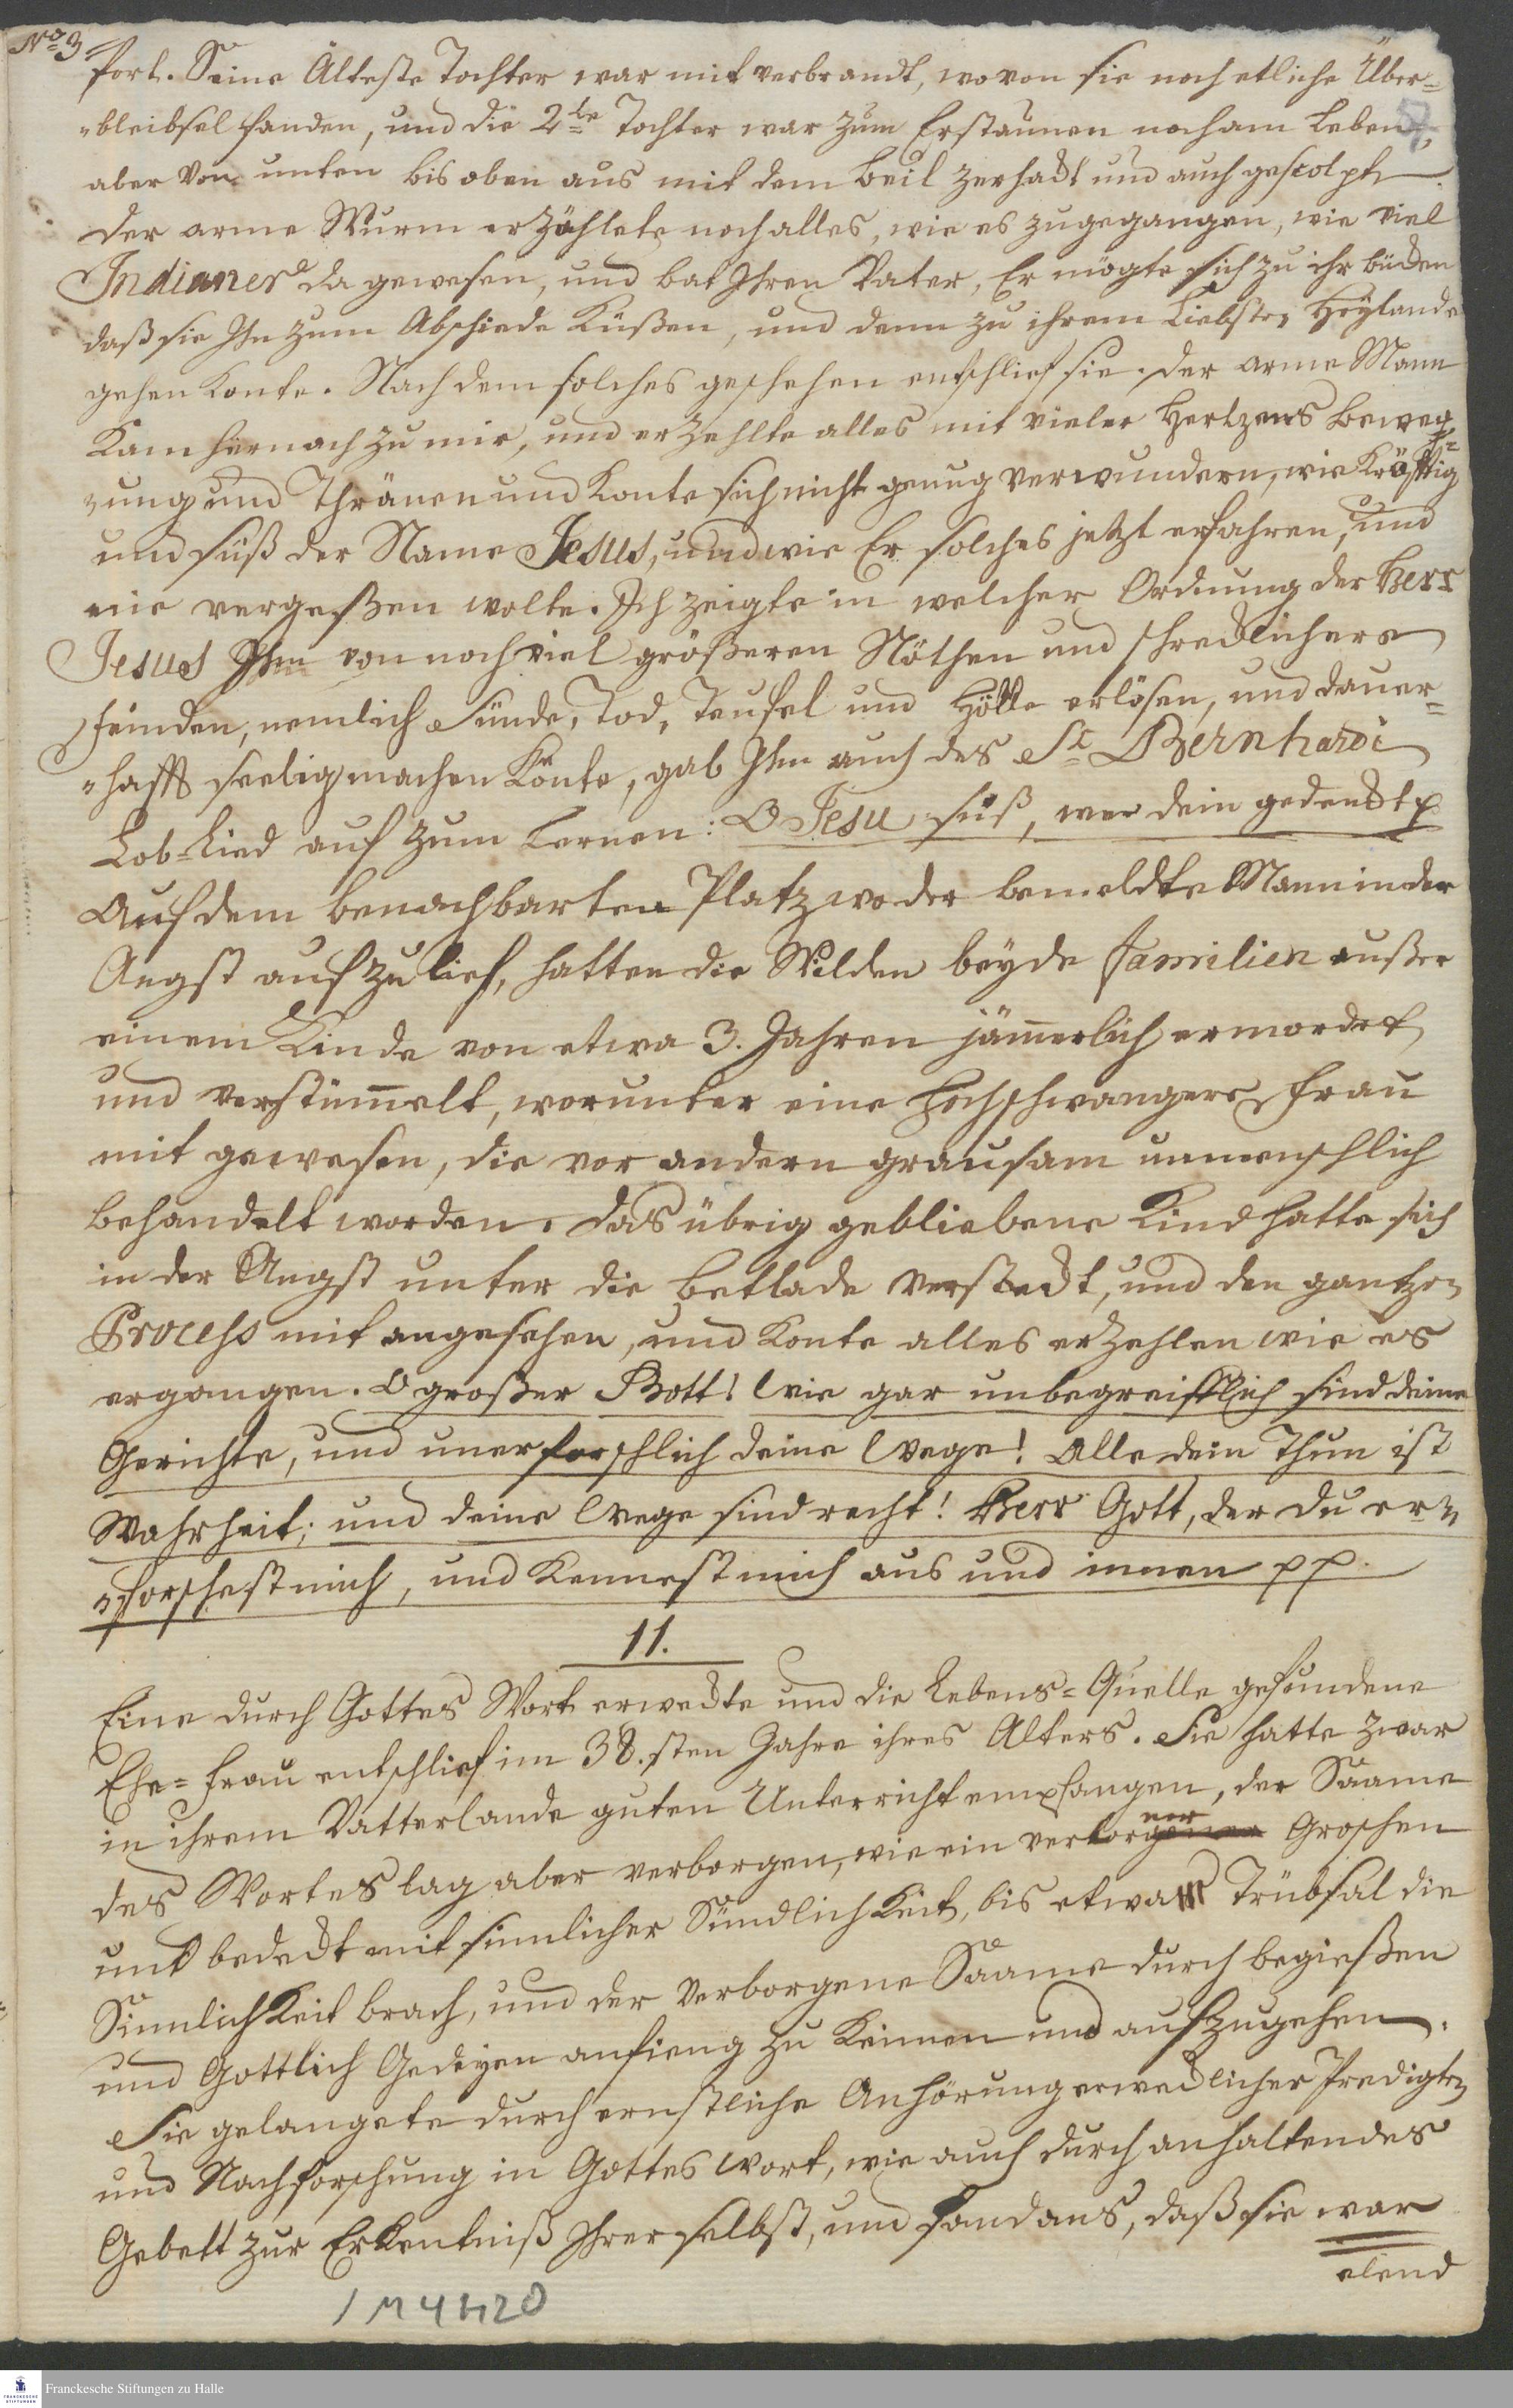 No 3
fort. Seine Älteste Tochter war mit verbrandt, wovon sie noch etliche Über=
=bleibsel fanden, und die 2te Tochter war zum Erstaunen noch am Leben,
aber von unten bis oben aus mit dem Beil zerhackt und auch gescolpt.
Der arme Wurm erzählete noch alles, wie es zugegangen, wie viel
Indianer da gewesen, und bat Ihren Vater, Er mögte sich zu ihr bücken
daß sie Ihn zum Abschiede Küßen, und denn zu ihrem Liebsten Heylande
gehen Konte. Nach dem solches geschehen entschlief sie. Der arme Mann
Kam hernach zu mir, und erzehlte alles mit vieler Hertzens Beweg=
=ung und Thränen und Konte sich nicht genug verwundern, wie Kräfftig
und süß der Name Jesus, und wie Er solches jetzt erfahren, und
nie vergeßen wolte. Ich zeigte in welcher Ordnung der Herr
Jesus Ihn von noch viel größeren Nöthen und schrecklichere
Feinden, nemlich Sünde, Tod, Teufel und Hölle erlösen, und dauer=
=hafft seelig machen Könte, gab Ihm auch des St Bernhardi
Lob=Lied auf zum Lernen: O Jesu süß, wer dein gedenckt p
Auf dem benachbarten Platz wo der bemeldte Mann in der
Angst auf zu lief, hatten die Wilden beyde Familien außer
einem Kinde von etwa 3. Jahren jämerlich ermordet,
und verstümelt, worunter eine hochschwangere Frau
mit gewesen, die vor andern grausam unmenschlich
behandelt worden. Das übrig gebliebene Kind hatte sich
in der Angst unter die Betlade versteckt, und den gantzen
Process mit angesehen, und Konte alles erzehlen wie es
ergangen. O großer Gott! Wie gar unbegreifflich sind deine
Gerichte, und unerforschlich deine Wege! Alle dein Thun ist
Wahrheit; und deine Wege sind recht! Herr Gott, der du er=
=forschest mich, und Kennest mich aus und innen pp.
11.
Eine durch Gottes Wort erweckte und die Lebens=Quelle gefundene
Ehe=Frau entschlief im 38.sten Jahre ihres Alters. Sie hatte zwar
in ihrem Vatterlande guten Unterricht empfangen, der Saame
des Wortes lag aber verborgen, wie ein verlorner Groschen
und bedeckt mit sinnlicher Sündlichkeit, bis etwas Trübsal die
Sinnlichkeit brach, und der verborgene Saame durch begießen
und Gottlich Gedeyen anfieng zu Keimen und aufzugehen.
Sie gelangete durch ernstliche Anhörung erwecklicher Predigten
und Nachforschung in Gottes Wort, wie auch durch anhaltendes
Gebett zur Erkentniß Ihrer selbst, und fand aus, daß sie war
elend
1 M 4 H 20
Franckesche Stiftungen zu Halle